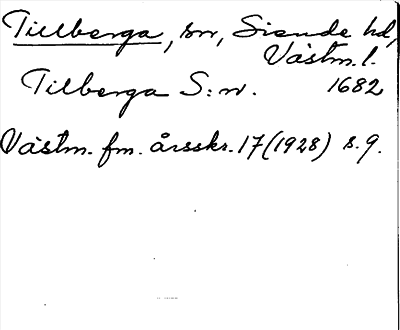 Tillberga, sn, Siende hd,
Västm. l.
Tilberga S:n. 1682
Västm. fm. årsskr. 17 (1928) s. 9.